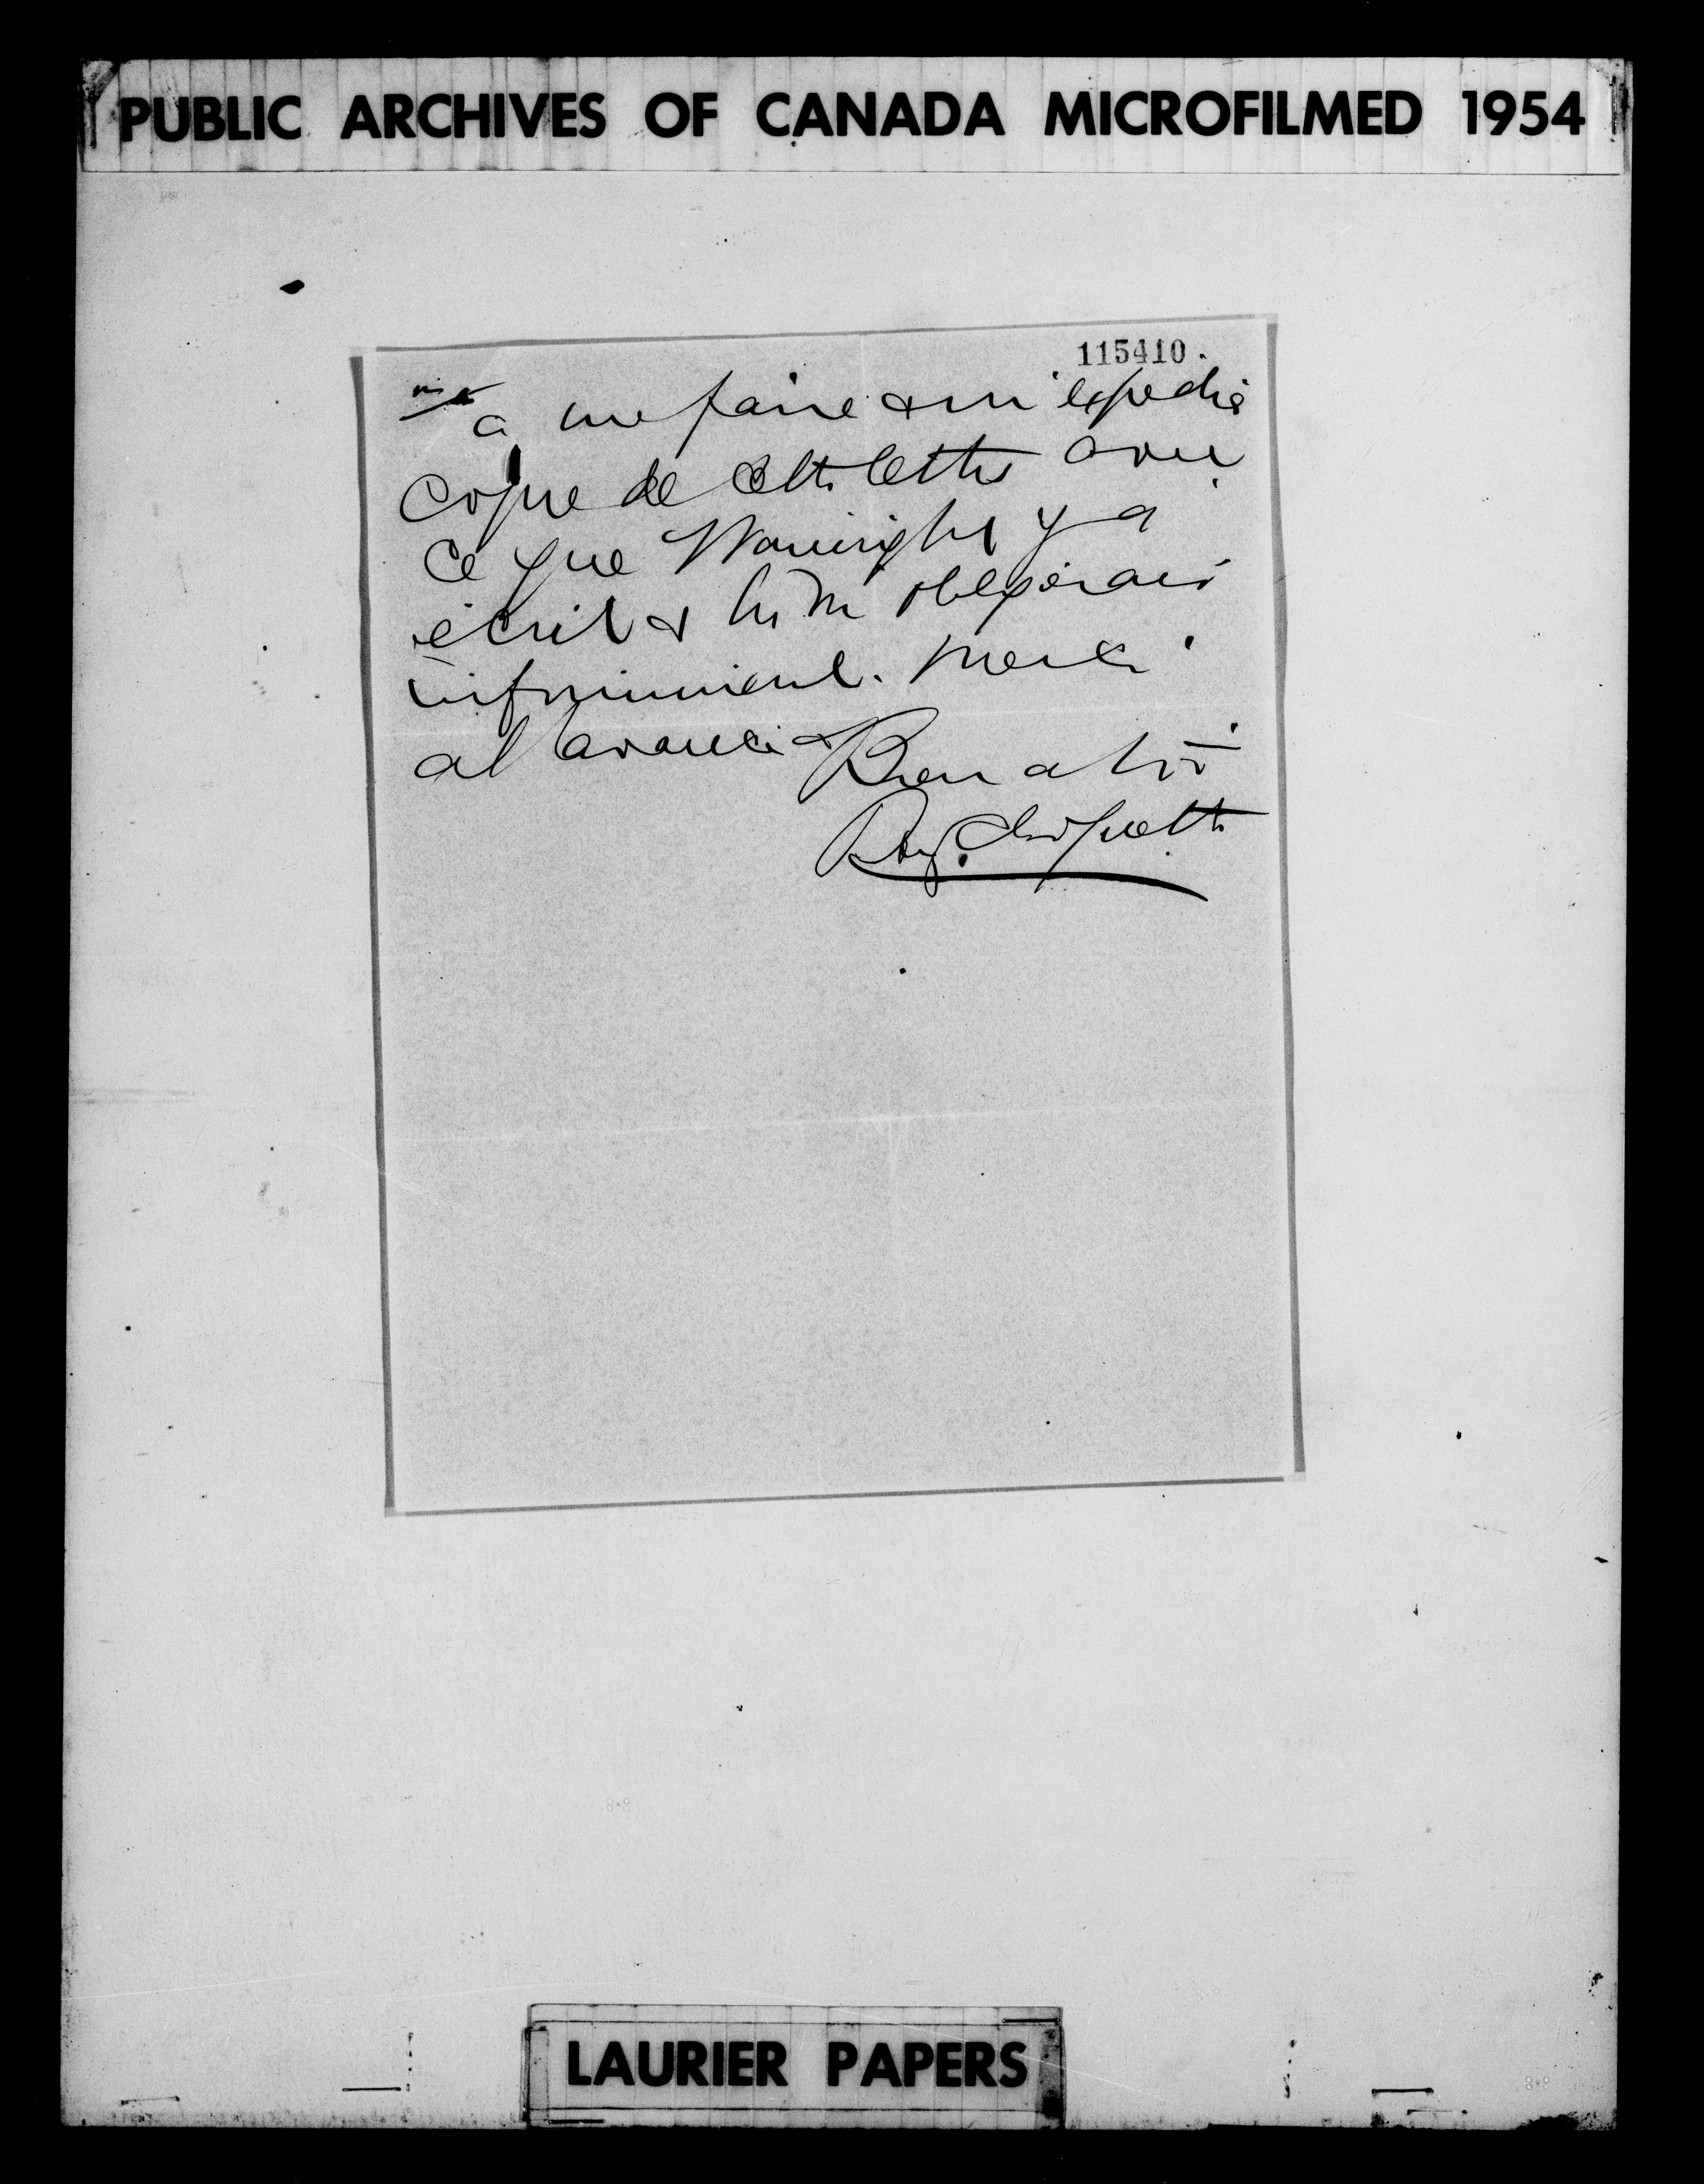 PUBLIC ARCHIVES OF CANADA MICROFILMED 1954
115410.
a me faire & m'expedie
Copie de cette lettre avec
Ce que Wainright y a
écrit & tu m'obligerais
infiniment. Merci
al avance & Bien a toi
LAURIER PAPERS